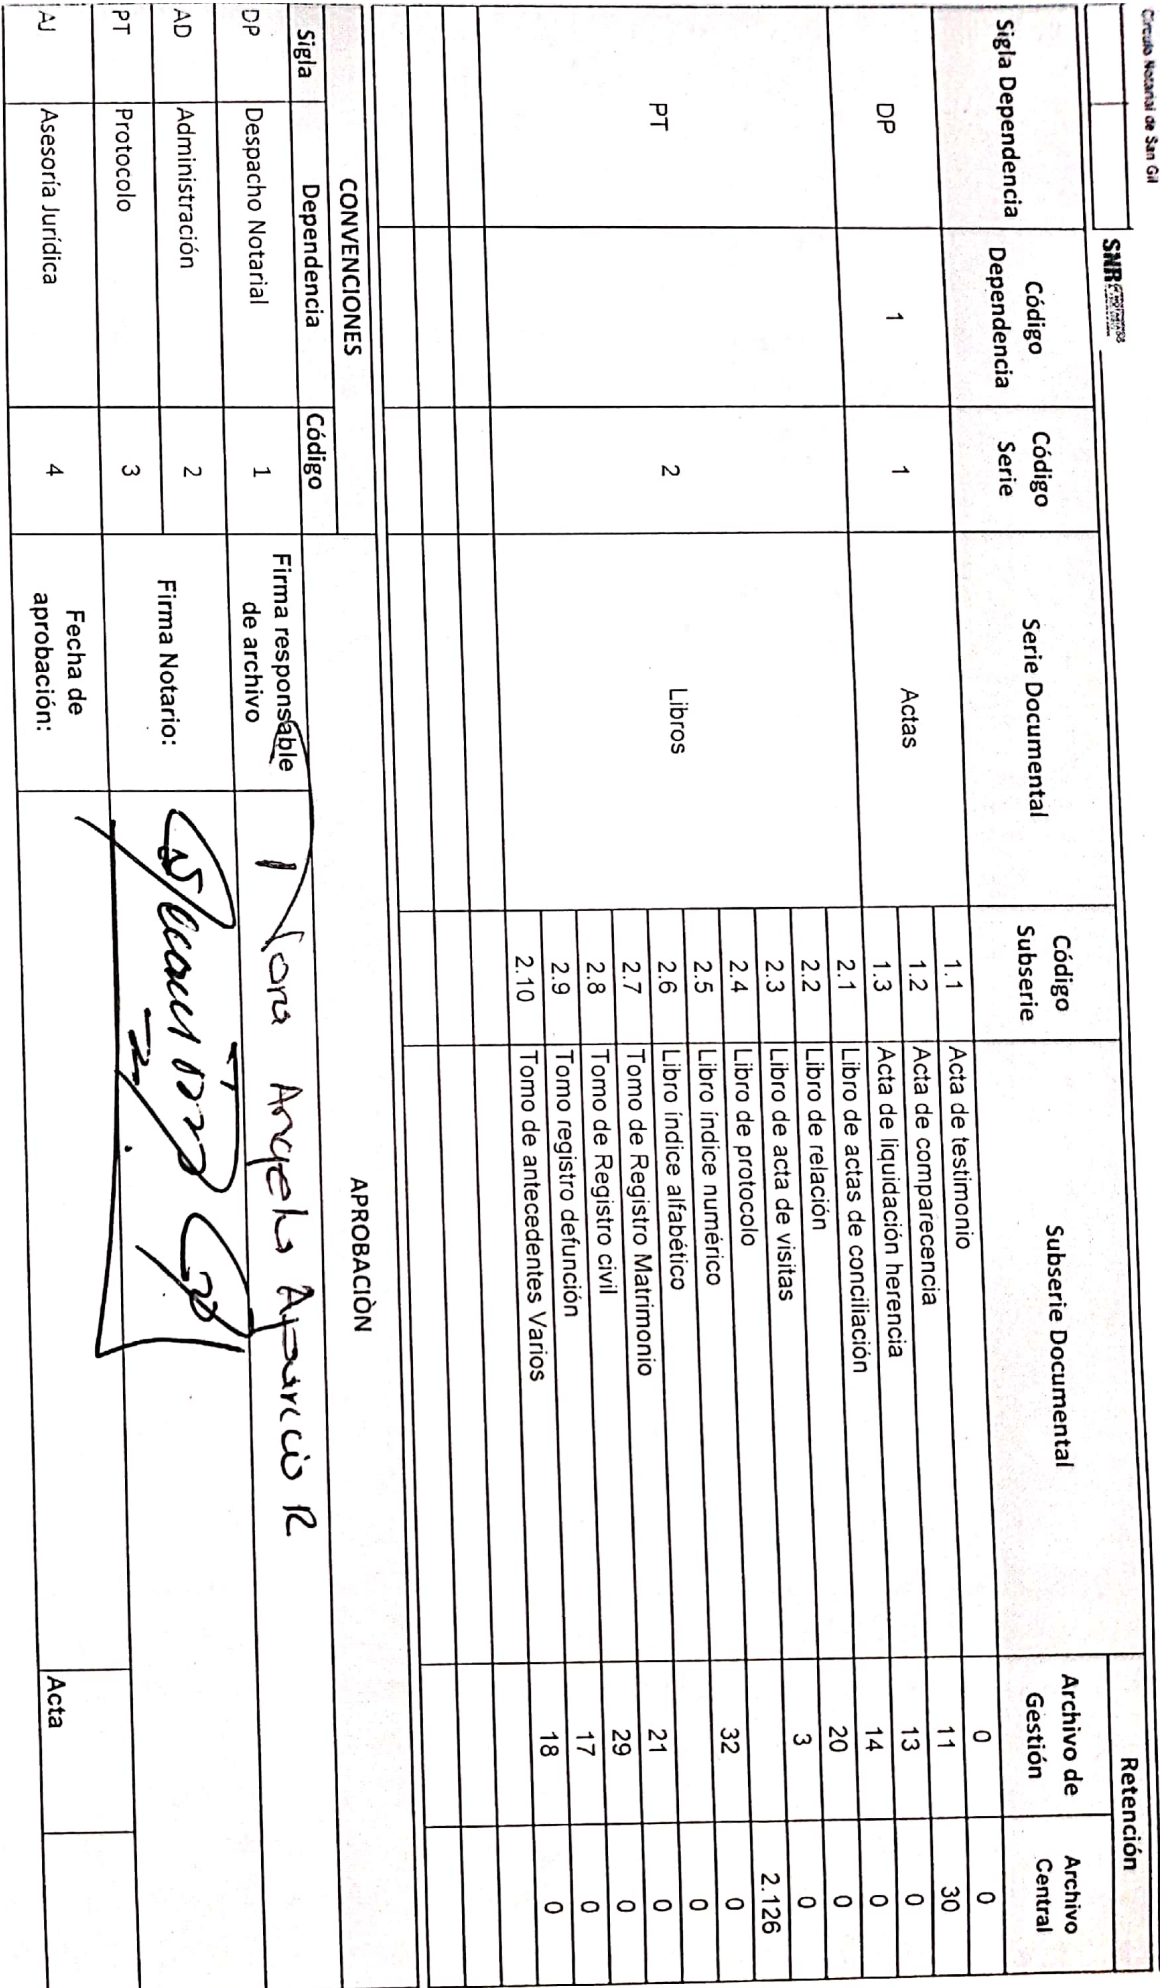 Círculo Notarial de San Gil
SNR
Retención
Sigla Dependencia Código Dependencia Código Serie Serie Documental Código Subserie Subserie Documental Archivo de Gestión Archivo Central
DP 1 1 Actas
1.1 Acta de testimonio 0 0
1.2 Acta de comparecencia 11 30
1.3 Acta de liquidación herencia 13 0
PT 2 Libros
2.1 Libro de actas de conciliación 14 0
2.2 Libro de relación 20 0
2.3 Libro de acta de visitas 3 0
2.4 Libro de protocolo 2.126
2.5 Libro índice numérico 32 0
2.6 Libro índice alfabético 0
2.7 Tomo de Registro Matrimonio 21 0
2.8 Tomo de Registro civil 29 0
2.9 Tomo registro defunción 17 0
2.10 Tomo de antecedentes Varios 18 0
CONVENCIONES
Sigla Dependencia Código
DP Despacho Notarial 1
AD Administración 2
PT Protocolo 3
AJ Asesoría Jurídica 4
APROBACIÒN
Firma responsable
de archivo
Nora Angela Aparicio R
Firma Notario:
Fecha de
aprobación:
Acta